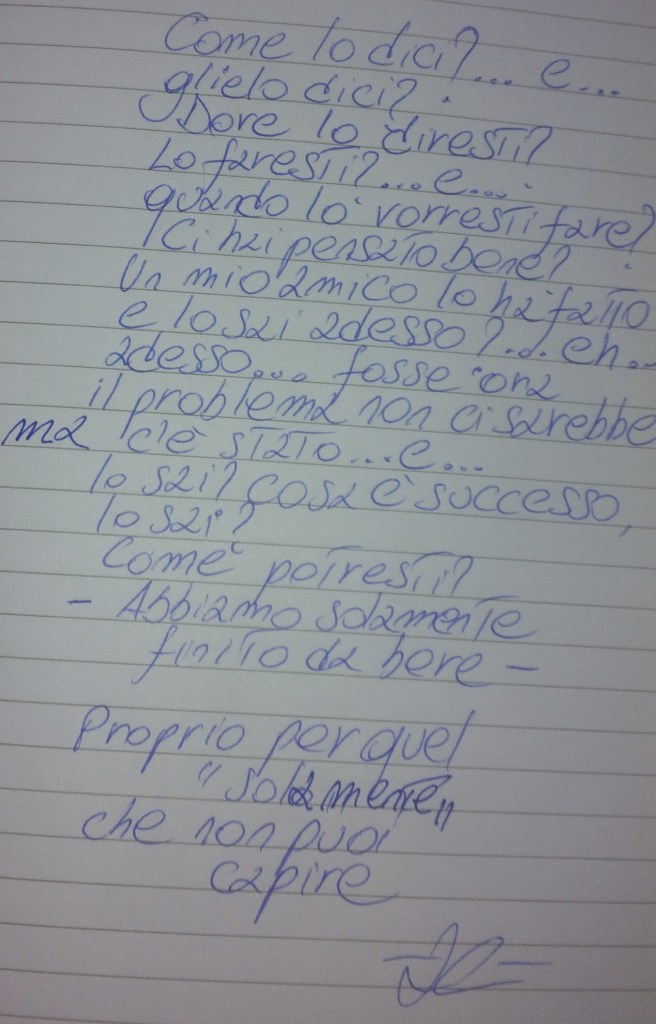 Come lo dici?... e...
glielo dici?
Dove lo diresti?
Lo faresti?... e...
quando lo vorresti fare?
Ci hai pensato bene?
Un mio amico lo ha fatto
e lo sai adesso?... eh...
adesso... fosse ora
il problema non ci sarebbe
ma c'è stato... e...
lo sai? cosa è successo,
lo sai?
Come potresti?
- Abbiamo solamente
finito da bere -
Proprio per quel
"solamente"
che non puoi
capire